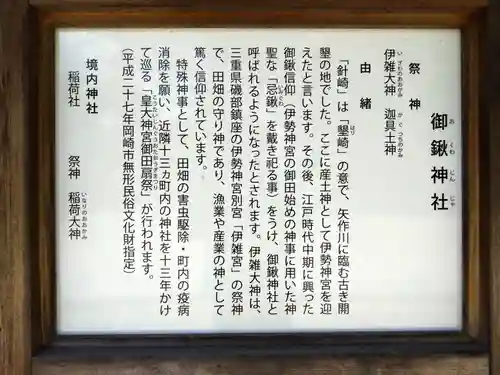 御鍬神社
おくわじんじゃ
祭神
伊雑大神 迦具土神
いざわのおおかみ かぐつちのかみ
由緒
「針崎」は「墾崎」の意で、矢作川に臨む古き開
はり
墾の地でした。ここに産土神として伊勢神宮を迎
えたと言います。その後、江戸時代中期に興った
御鍬信仰（伊勢神宮の御田始めの神事に用いた神
聖な「忌鍬」を戴き祀る事）をうけ、御鍬神社と
呼ばれるようになったとされます。伊雑大神は、
三重県磯部鎮座の伊勢神宮別宮「伊雑宮」の祭神
で、田畑の守り神であり、漁業や産業の神として
篤く信仰されています。
特殊神事として、田畑の害虫駆除・町内の疫病
消除を願い、近隣十三カ町内の神社を十三年かけ
て巡る「皇大神宮御田扇祭」が行われます。
（平成二十七年岡崎市無形民俗文化財指定）
境内神社
稲荷社 祭神 稲荷大神
いなりのおおかみ